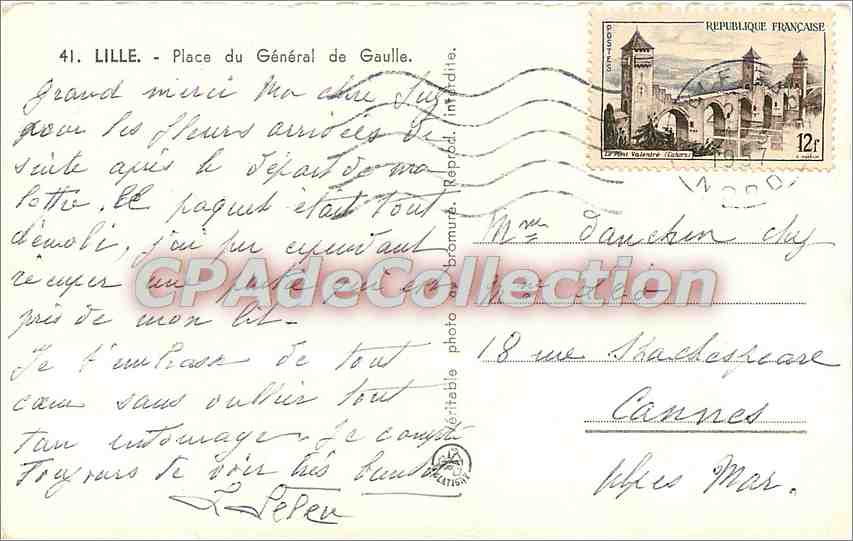 41. LILLE. - Place du Général de Gaulle.
Grand merci Ma chère Suz
pour les fleurs arrivées de
suite après le départ de ma
lettre. Le paquet était tout
démoli, j'ai pu cependant
récuper un partie qui est
près de mon lit -
Je t'embrasse de tout
cœur sans oublier tout
ton entourage. Je compte
toujours te voir très bientôt
Véritable photo au bromure. Reprod. interdite.
REPUBLIQUE FRANÇAISE
POSTES
Le Pont Valentré (Cahors)
12f
1957
Mme chez
Mme
18 rue Shackespeare
Cannes
Alpes Mar.
CPAdeCollection